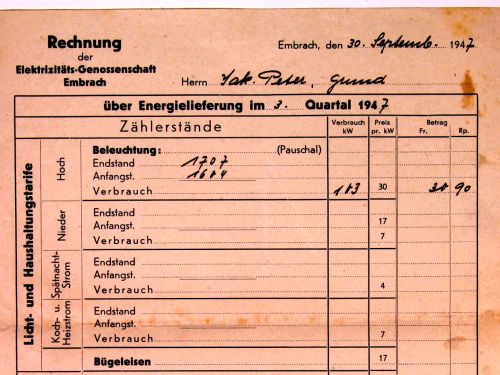 Rechnung
der
Elektrizitäts-Genossenschaft
Embrach
Embrach, den 30. Septemb. 1947
Herrn Jak. Peter, Grund
über Energielieferung im 3. Quartal 1947
Zählerstände
Verbrauch kW
Preis pr. kW
Betrag
Fr. Rp.
Licht- und Haushaltungstarife
Hoch
Beleuchtung: (Pauschal)
Endstand 1707
Anfangst. 1604
Verbrauch 103 30 30 90
Nieder
Endstand
Anfangst. 17
Verbrauch 7
Spätnacht-Strom
Endstand
Anfangst.
Verbrauch 4
Koch- u. Heizstrom
Endstand
Anfangst.
Verbrauch 7
Bügeleisen 17